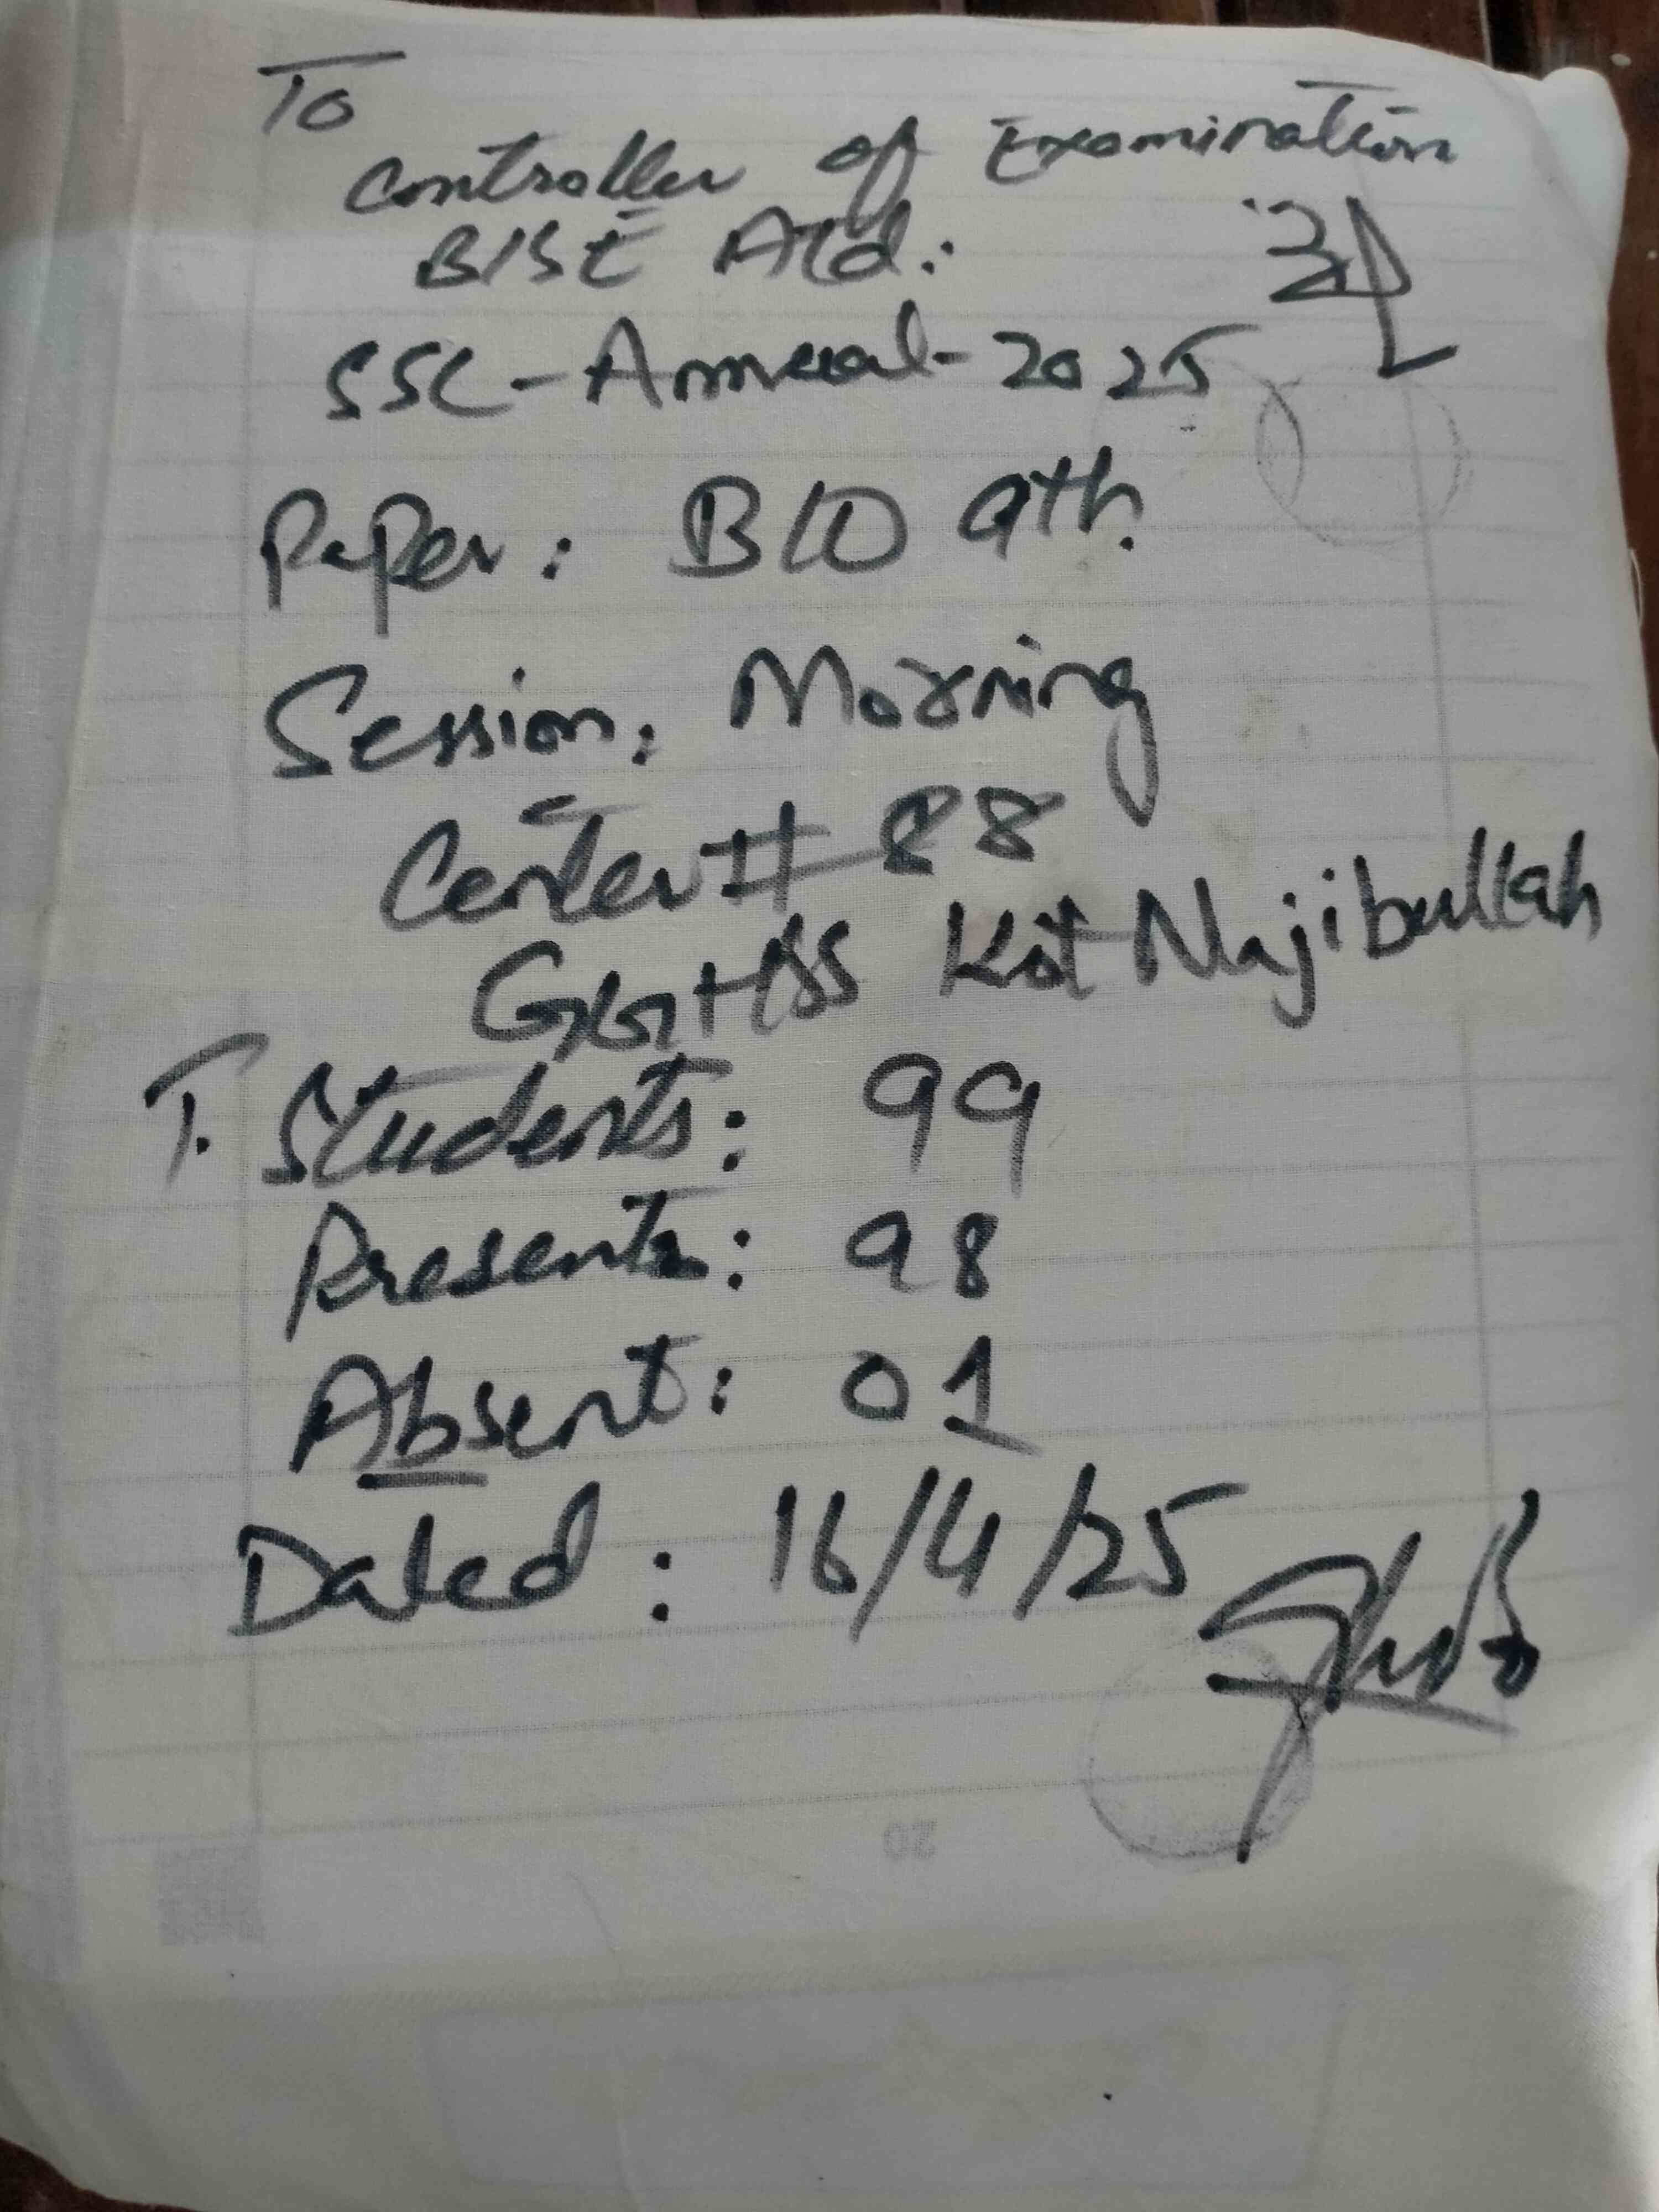 To
Controller of Examination
BISE Atd:
SSC-Annual-2025
Paper: BIO 9th.
Session: Morning
Center# 88
GGHSS Kot Najibullah
T. Students: 99
Presents: 98
Absent: 01
Dated: 16/4/25
20